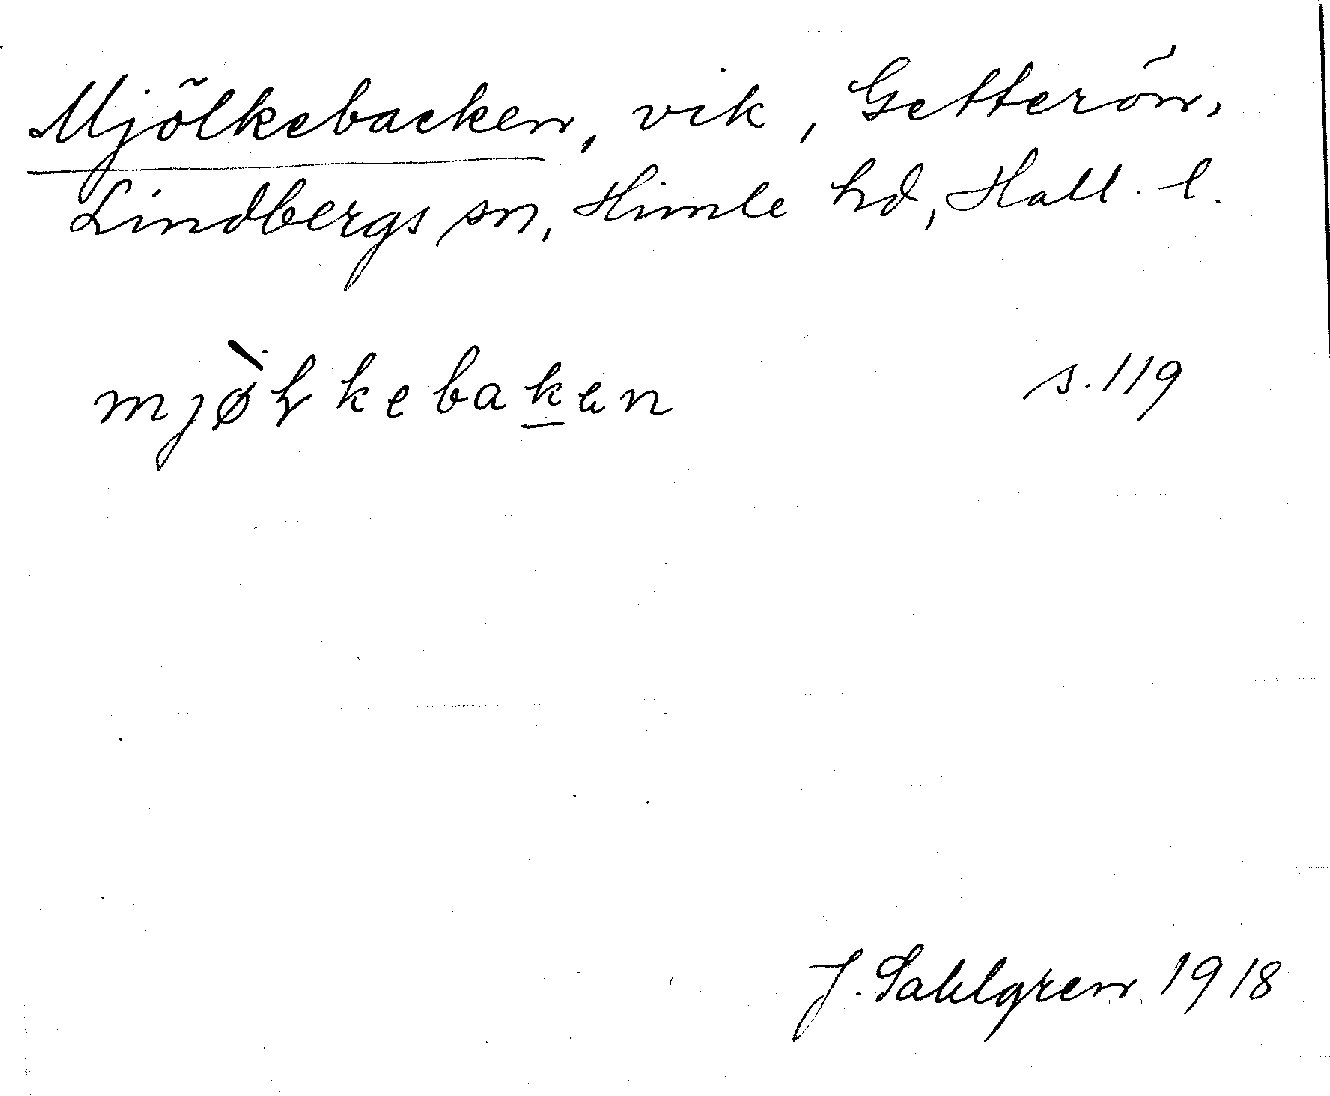 Mjölkebacken, vik, Getterön,
Lindbergs sn, Himle hd, Hall. l.
mjø̀ɽkebaken s. 119
J. Sahlgren 1918